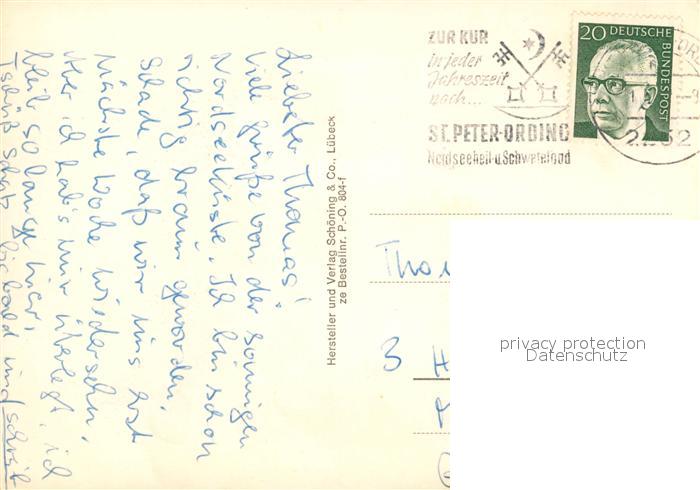 Liebster Thomas!
Viele Grüße von der sonnigen
Nordseeküste. Ich bin schon
richtig braun geworden.
Schade, daß wir uns erst
nächste Woche wiedersehn.
Aber ich hab's mir überlegt, ich
bleib solange hier.
Tschüß Schatz, bis bald und schreib
Hersteller und Verlag Schöning & Co., Lübeck
ze Bestellnr. P.-O. 804-f
ZUR KUR
in jeder
Jahreszeit
nach...
ST. PETER-ORDING
Nordseeheil-u.Schwefelbad
20 DEUTSCHE
BUNDESPOST
2252
Tho
3 H
privacy protection
Datenschutz